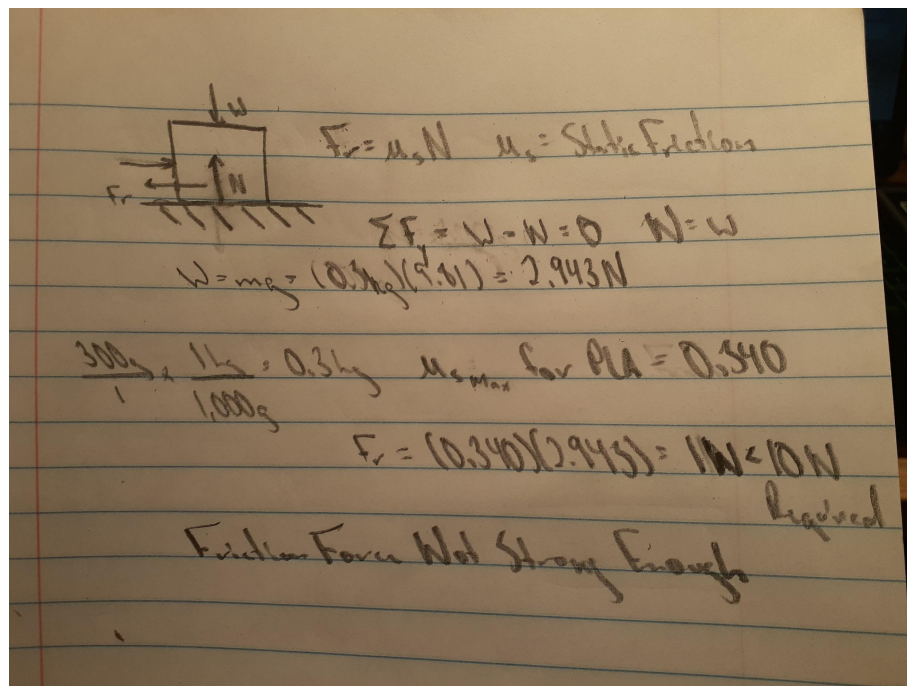 W
Fr = μsN μs = Static Friction
Fr N
ΣFy = N - W = 0 N = W
W = mg = (0.3kg)(9.81) = 2.943N
300g/1 × 1kg/1,000g = 0.3kg μs Max for PLA = 0.340
Fr = (0.340)(2.943) = 1N < 10N
Required
Friction Force Not Strong Enough